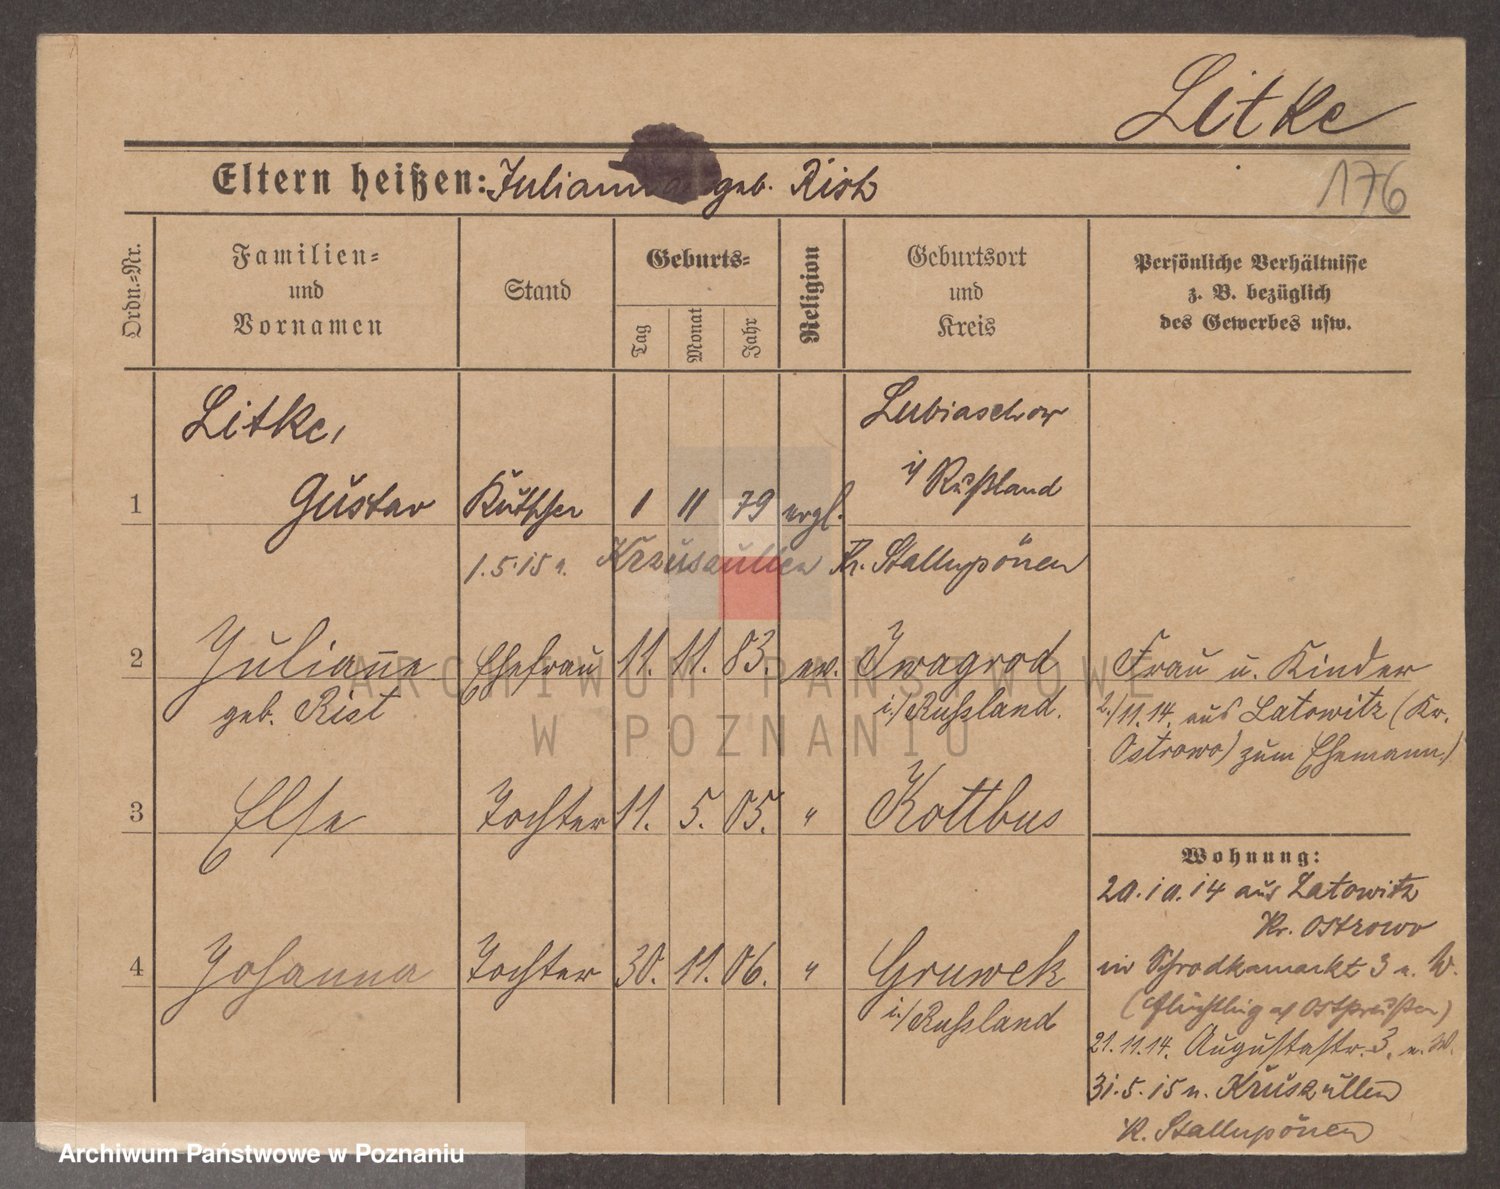 Litke
176
Eltern heißen: Julianna geb. Rist
Ordn.-Nr.
Familien-
und
Vornamen
Stand
Geburts-
Tag
Monat
Jahr
Religion
Geburtsort
und
Kreis
Persönliche Verhältnisse
z. B. bezüglich
des Gewerbes usw.
Litke,
Lubiaschow
i/ Rußland
1 Gustav Kutscher 1 11 79 evgl.
1.5.15 n. Kruszullen Kr. Stallupönen
2 Julianne Ehefrau 11. 11. 83. ev. Iwagrod
geb. Rist
i./Russland.
Frau u. Kinder
2./11.14. aus Latowitz (Kr.
Ostrowo) zum Ehemann)
3 Else Tochter 11. 5. 05. " Kottbus
4 Johanna Tochter 30. 11. 06. " Gruwek
i./Russland
Wohnung:
20.10.14 aus Latowitz
Kr. Ostrowo
in Schrodkamarkt 3 n. W.
(Flüchtling a/ Ostpreußen)
21.11.14. Augustastr. 3. n. W.
31.5.15 n. Kruszullen
K. Stallupönen
ARCHIWUM PAŃSTWOWE
W POZNANIU
Archiwum Państwowe w Poznaniu